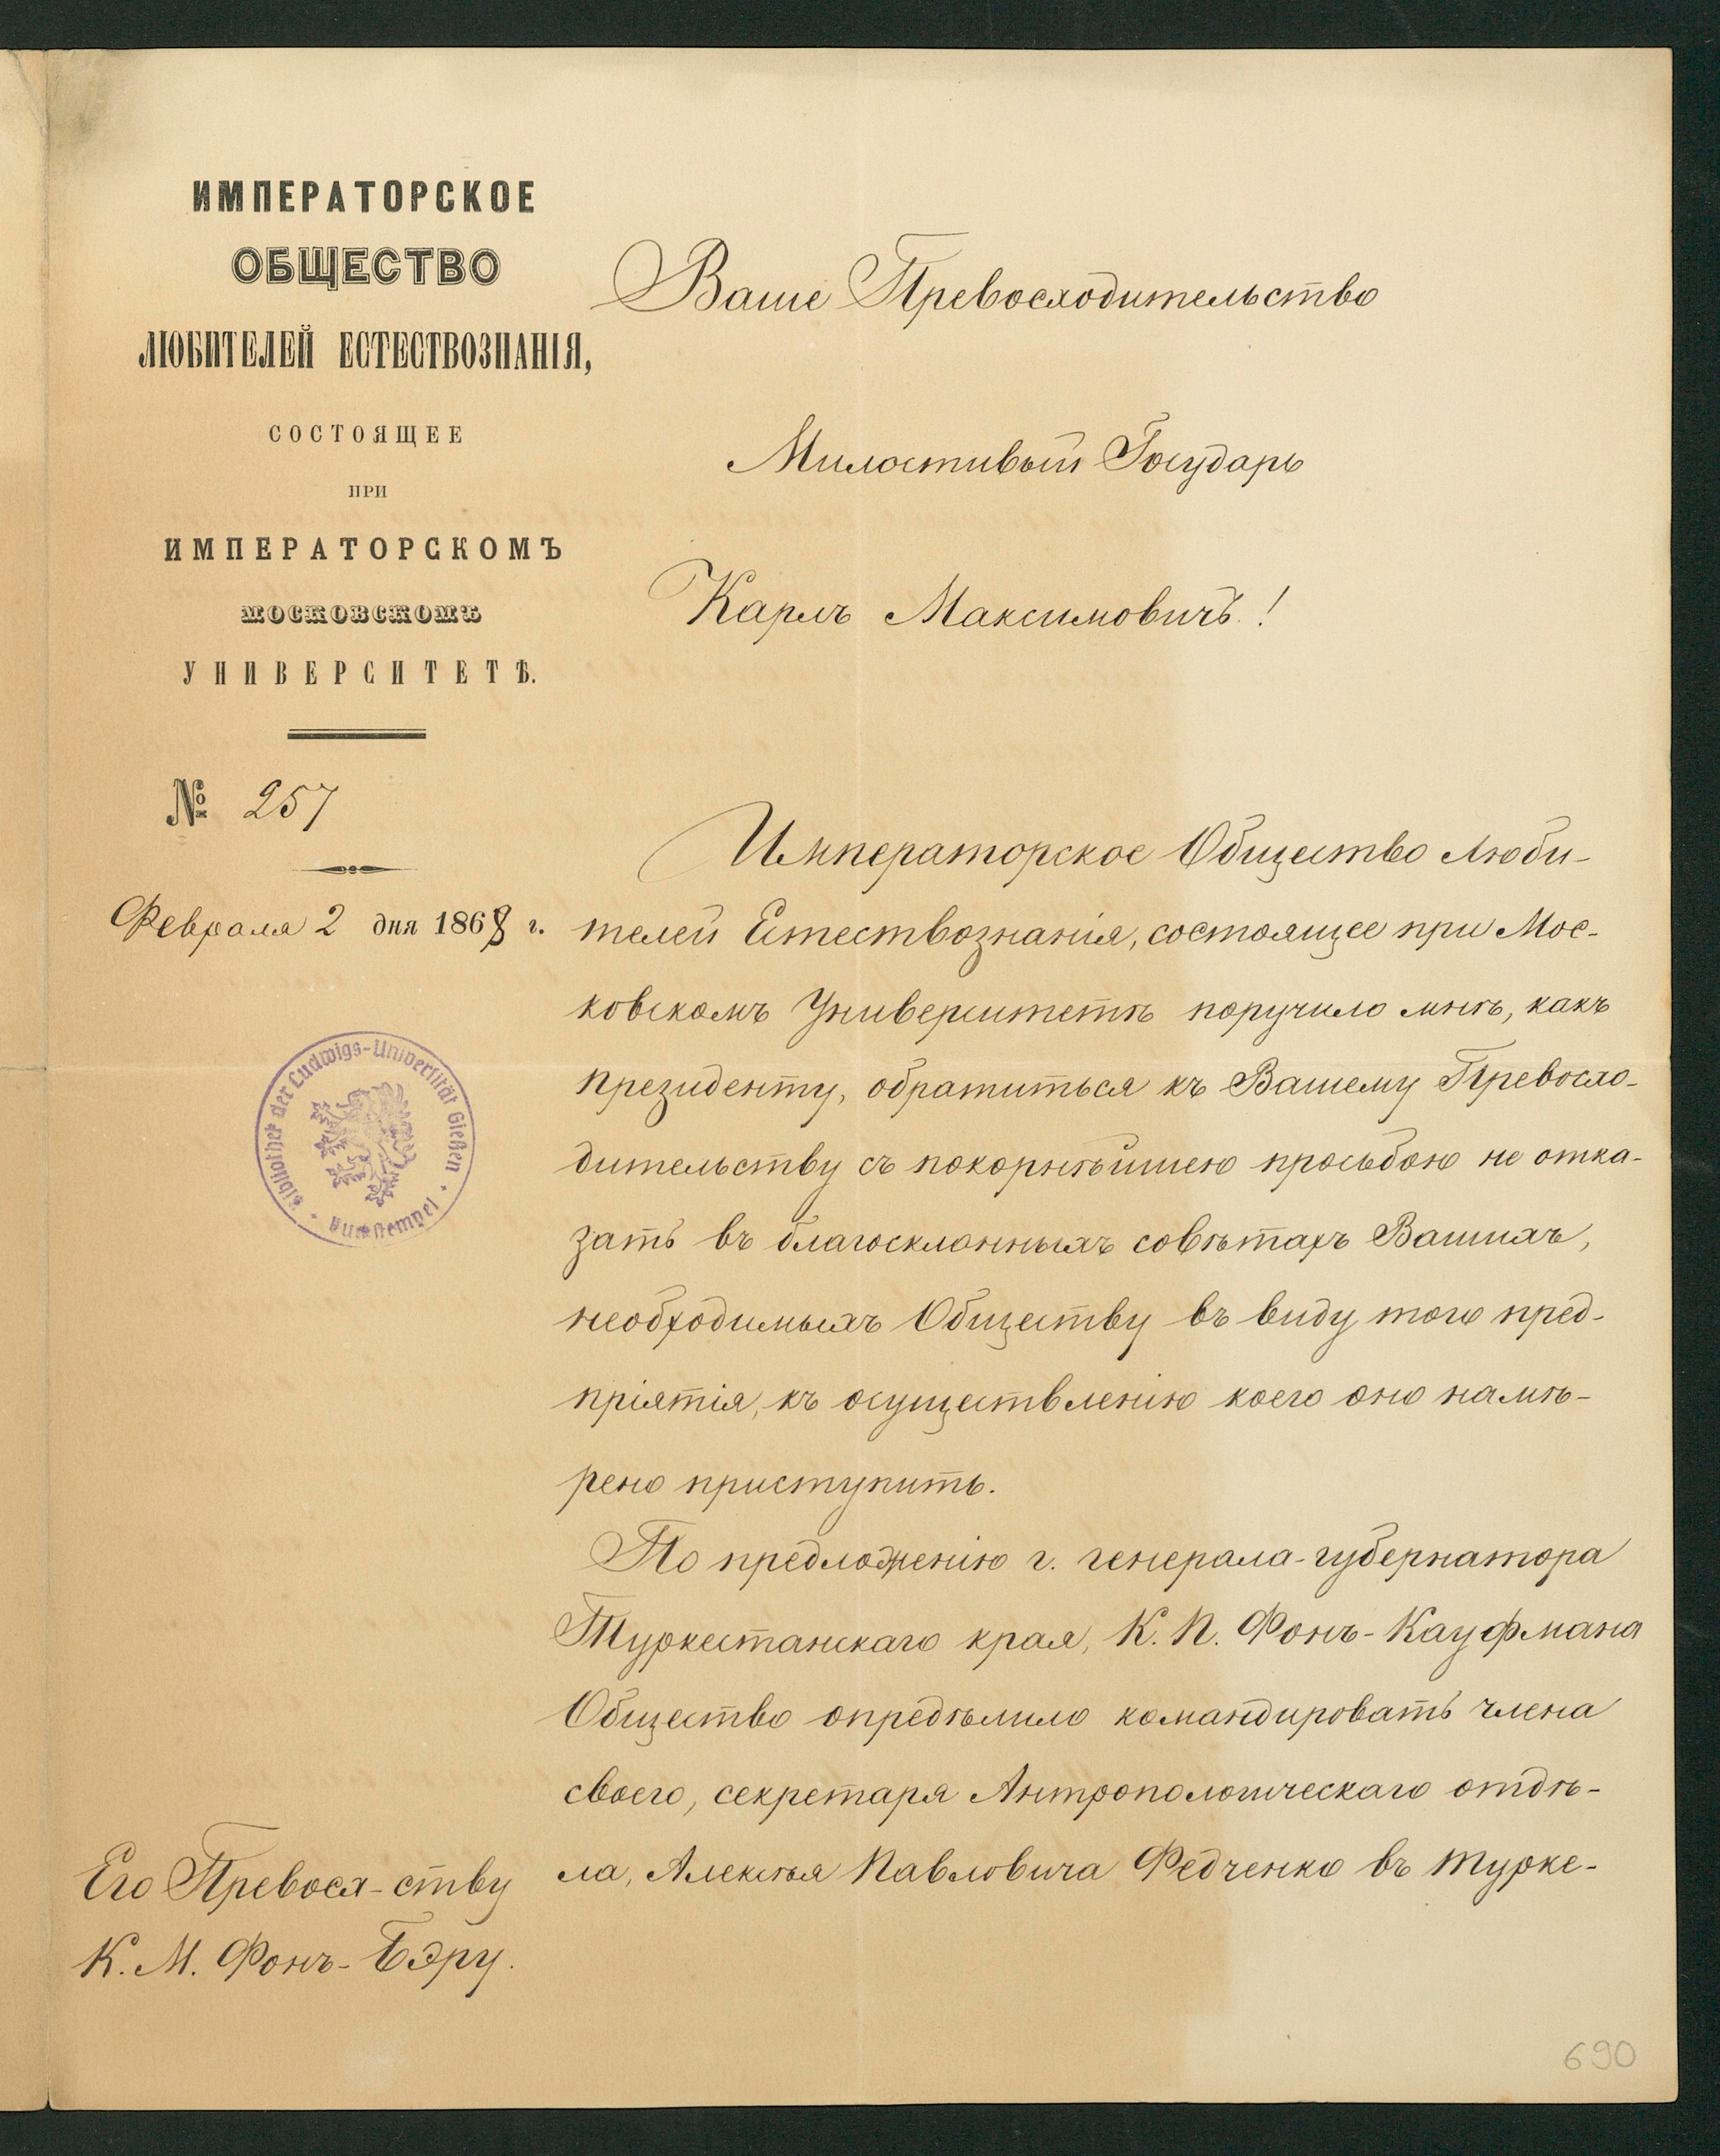 ИМПЕРАТОРСКОЕ
ОБЩЕСТВО
ЛЮБИТЕЛЕЙ ЕСТЕСТВОЗНАНІЯ,
СОСТОЯЩЕЕ
ПРИ
ИМПЕРАТОРСКОМЪ
МОСКОВСКОМЪ
УНИВЕРСИТЕТѢ.
№ 257
Февраля 2 дня 1868 г.
Bibliothek der Ludwigs-Universität Gießen
Ваше Превосходительство
Милостивый Государь
Карлъ Максимовичъ!
Императорское Общество Люби-
телей Естествознанія, состоящее при Мос-
ковскомъ Университетѣ поручило мнѣ, какъ
президенту, обратиться къ Вашему Превосхо-
дительству съ покорнѣйшею просьбою не отка-
зать въ благосклонныхъ совѣтахъ Вашихъ,
необходимыхъ Обществу въ виду того пред-
пріятія, къ осуществленію коего оно намѣ-
рено приступить.
По предложенію г. генерала-губернатора
Туркестанскаго края, К. П. Фонъ-Кауфмана
Общество опредѣлило командировать члена
своего, секретаря Антропологическаго отдѣ-
ла, Алексѣя Павловича Федченко въ Турке-
Его Превосх-ству
К. М. Фонъ-Бэру.
690